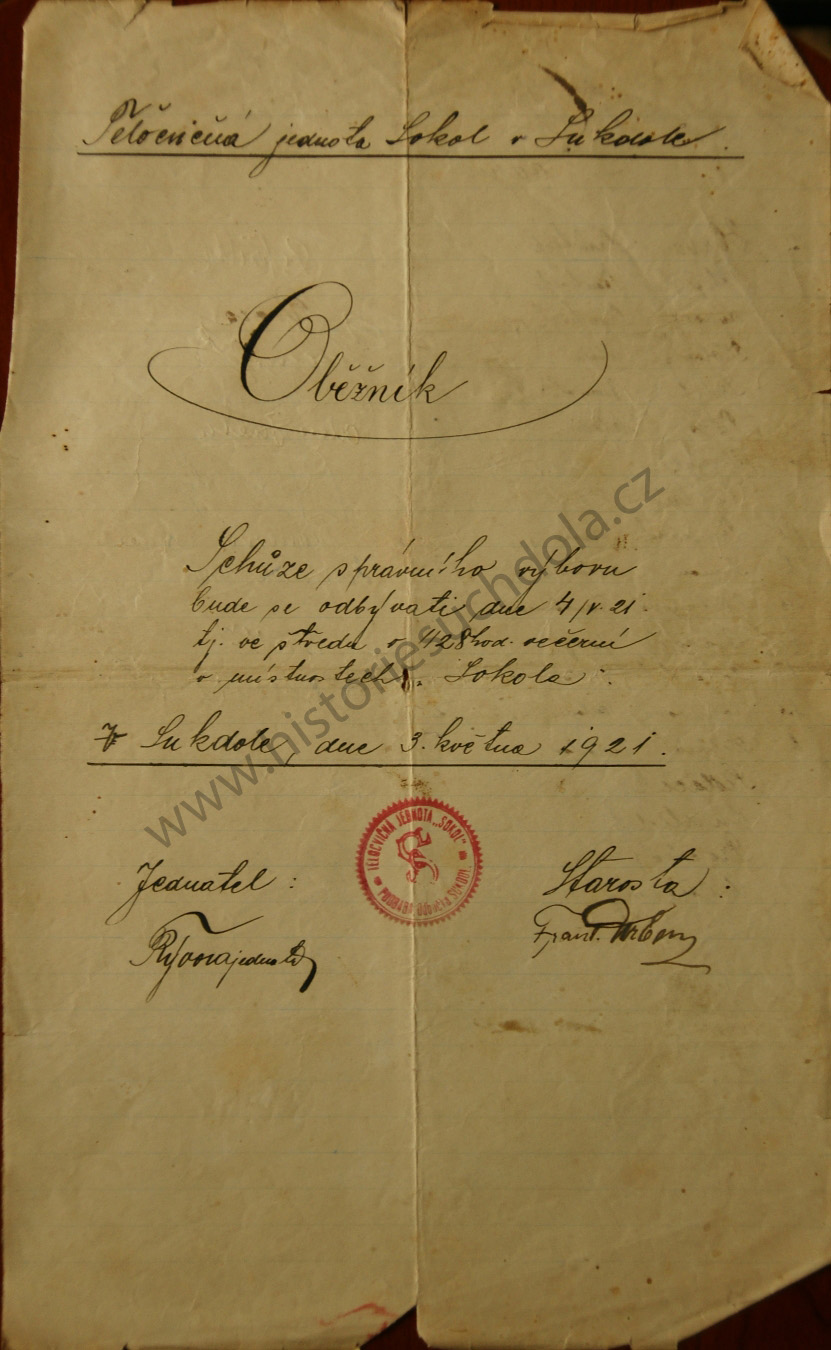 Tělocvičná jednota Sokol v Sukdole.
Oběžník
Schůze správního výboru
bude se odbývati dne 4/V. 21.
tj. ve středu o 428 hod. večerní
v místnostech. Sokola.
V Sukdole, dne 3. května 1921.
TĚLOCVIČNÁ JEDNOTA „SOKOL"
Jednatel:
Starosta:
Frant.
www.historiesuchdola.cz